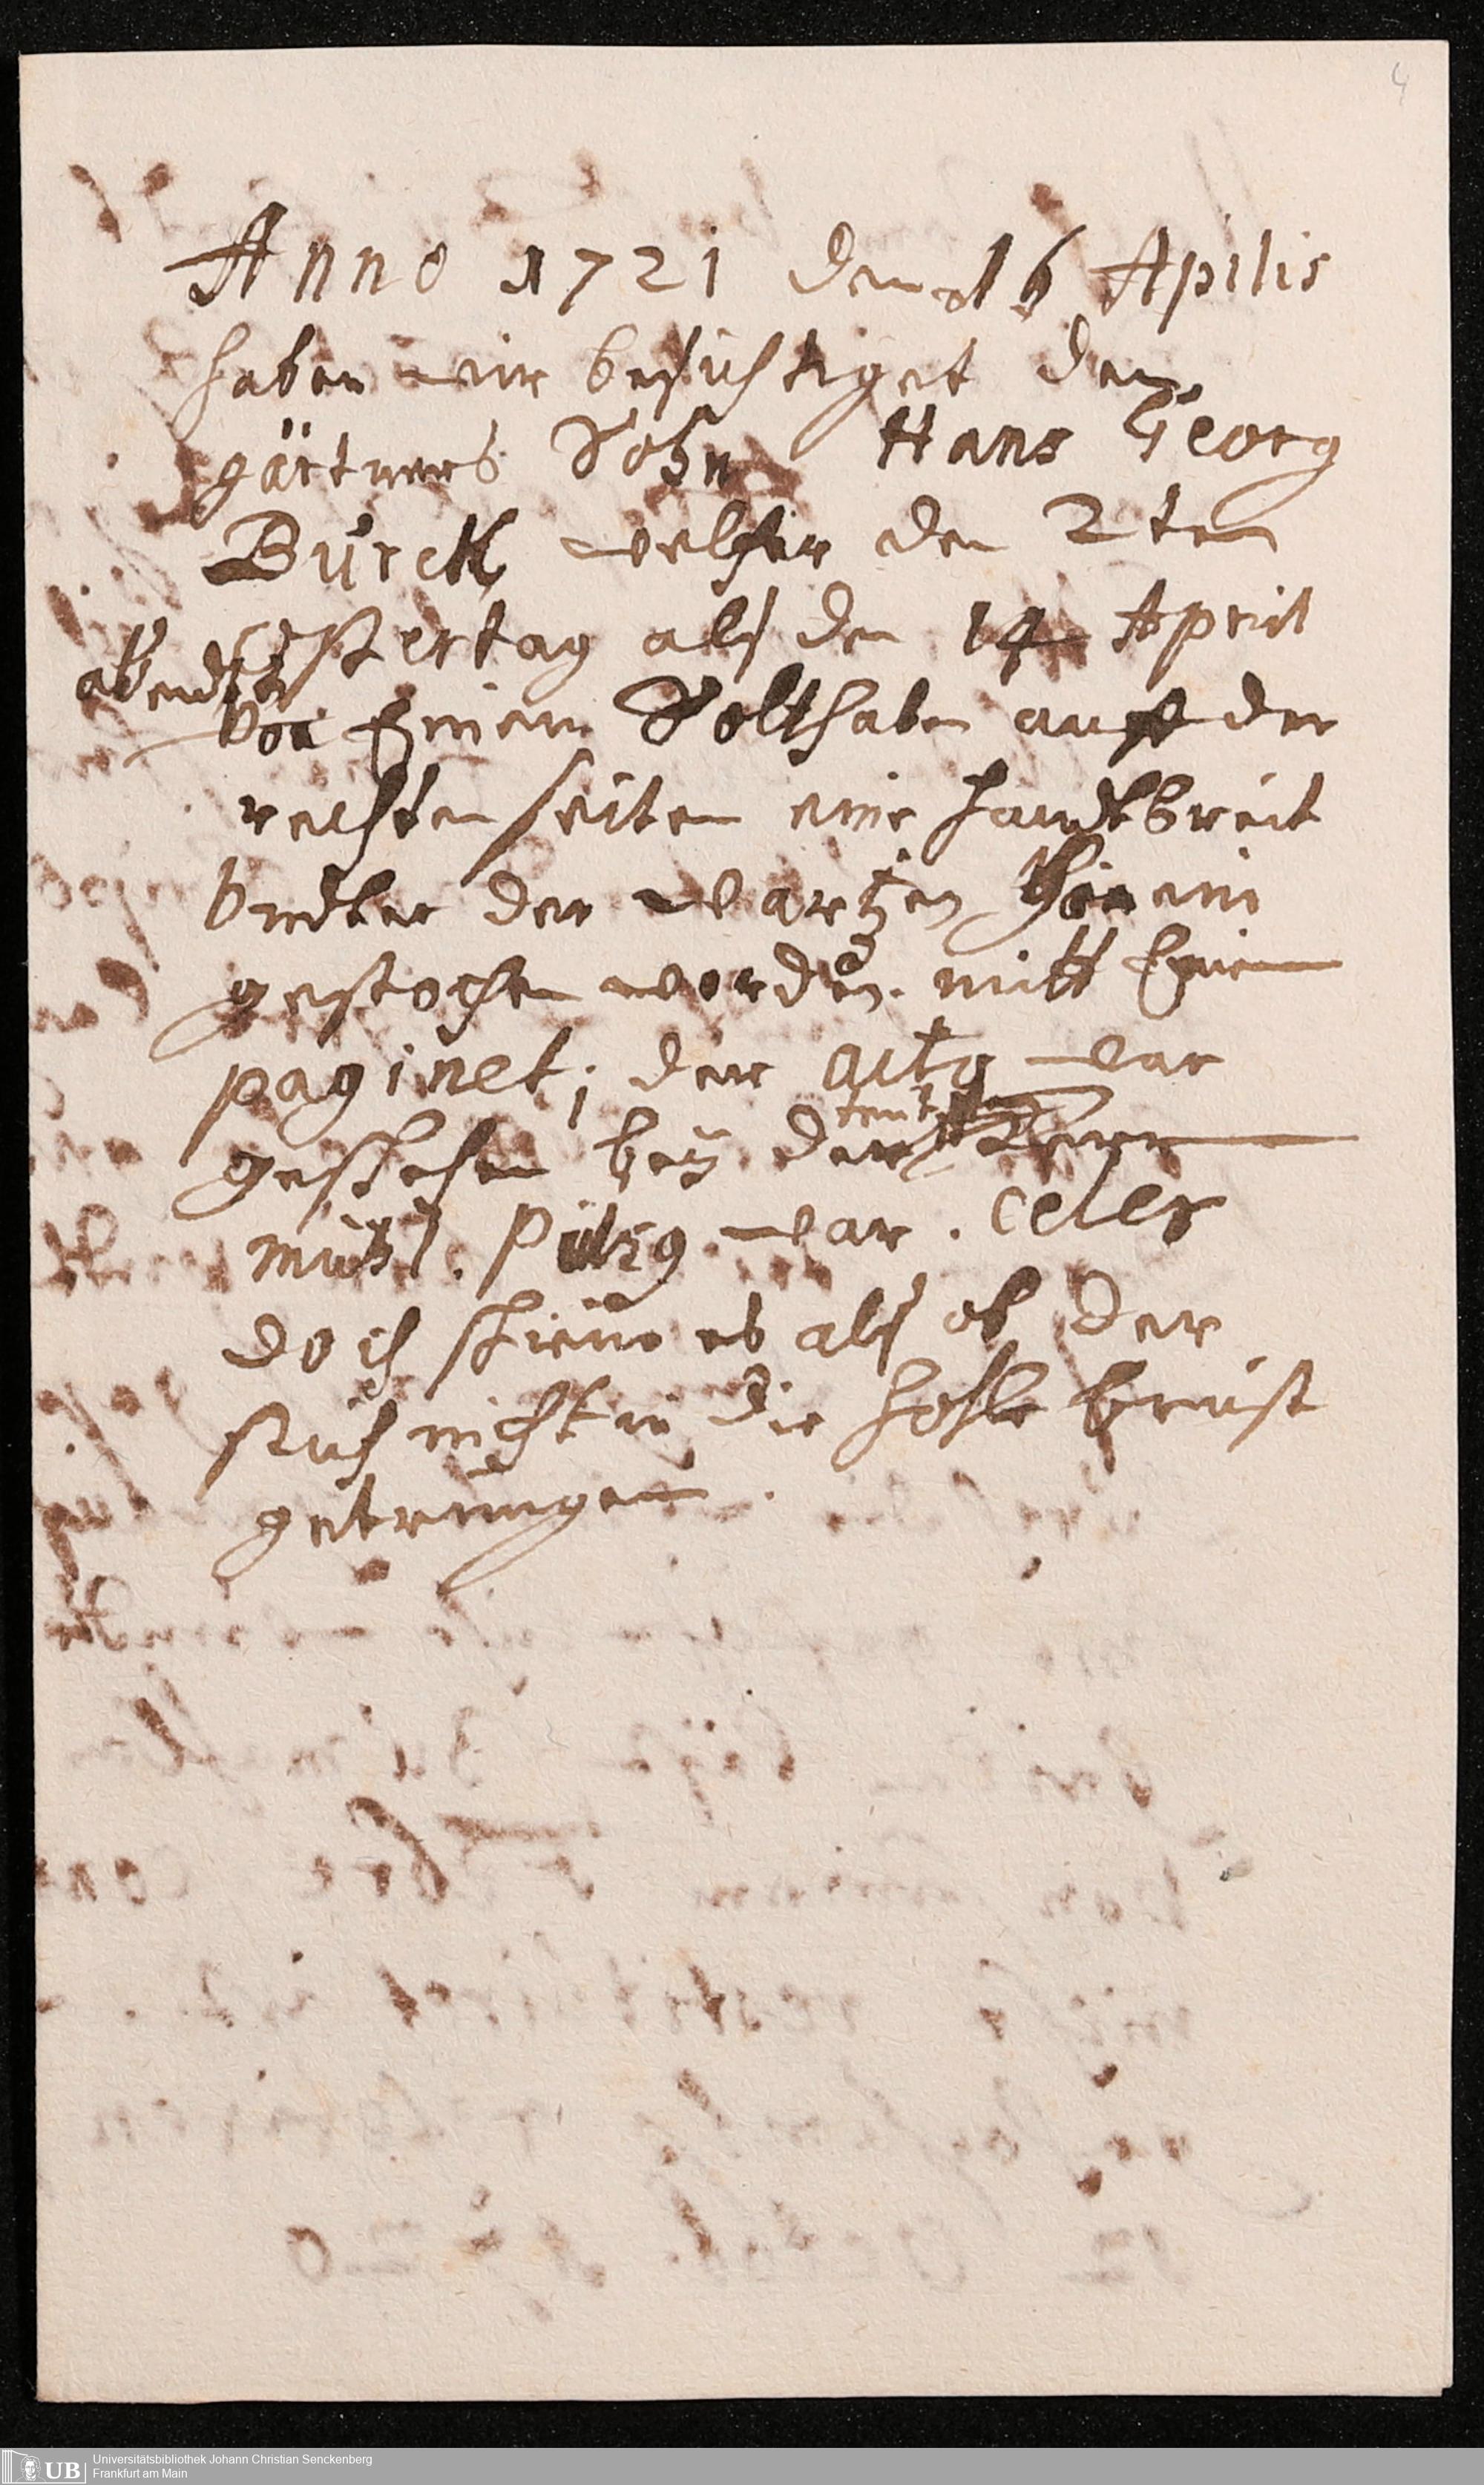 4
Anno 1721 den 16 Aprilis
haben wir besichtiget den
gärtners Sohn Hans Georg
Bürck welcher den 2ten
Ostertag alß den 14 April
abendts
von Einem Solthaten auff der
rechten seiten eine handtbreit
vndter der wartzen hinein
gestochen worden. mitt Einem
paginet; der acto war
geschehen bey der
mühl. pulsg war. celer
doch schiene es alß ob der
stich nicht in die hohle brust
getrungen.
UB
Universitätsbibliothek Johann Christian Senckenberg
Frankfurt am Main